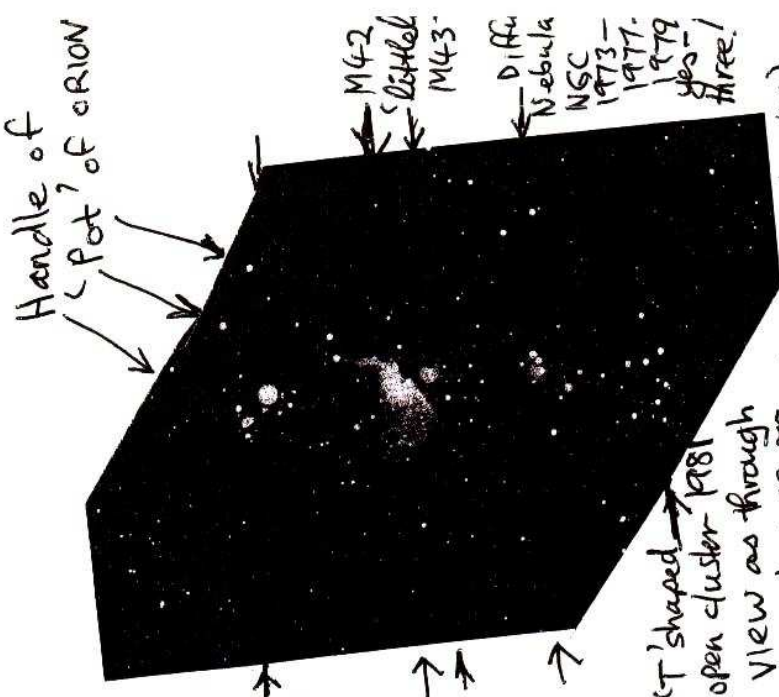 Handle of
'Pot' of ORION
M42
'little
M43.
Diffu
Nebula
NGC
1973-
1977-
1979
yes-
three!
'T' shaped
open cluster 1981
View as through